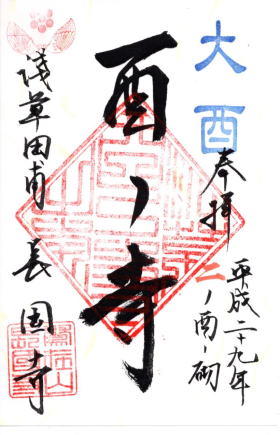 大酉
奉拝
平成二十九年
二ノ酉ノ砌
酉ノ寺
浅草田甫 長国寺